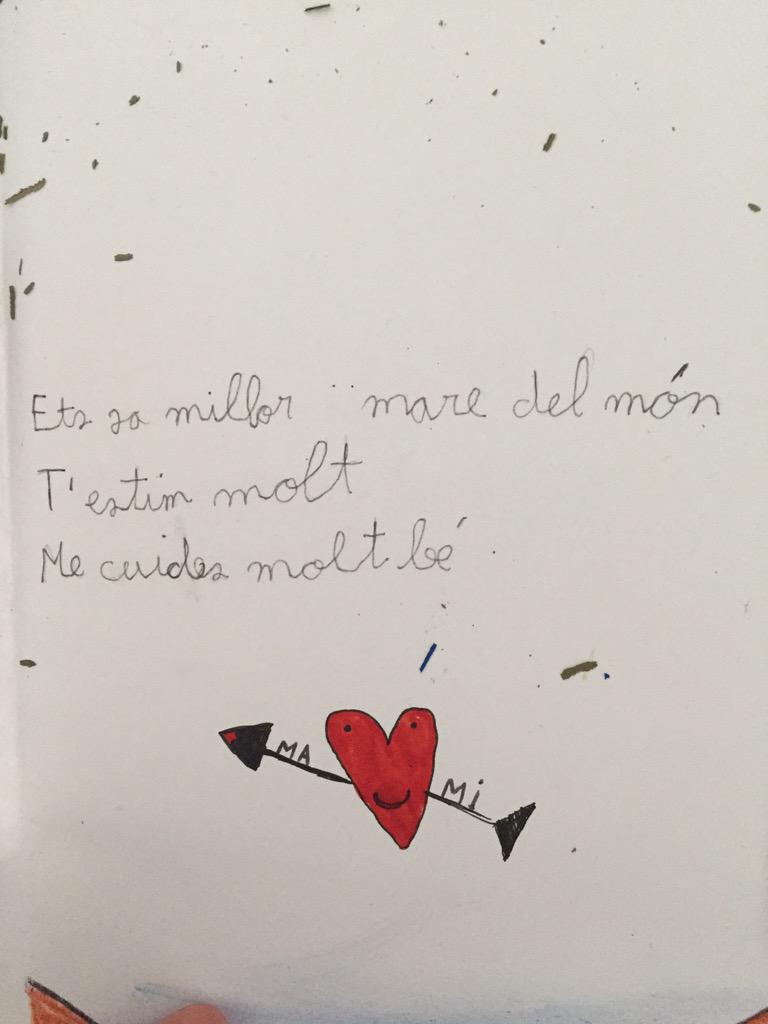 Ets sa millor mare del món
T'estim molt
Me cuides molt bé
MA Mi